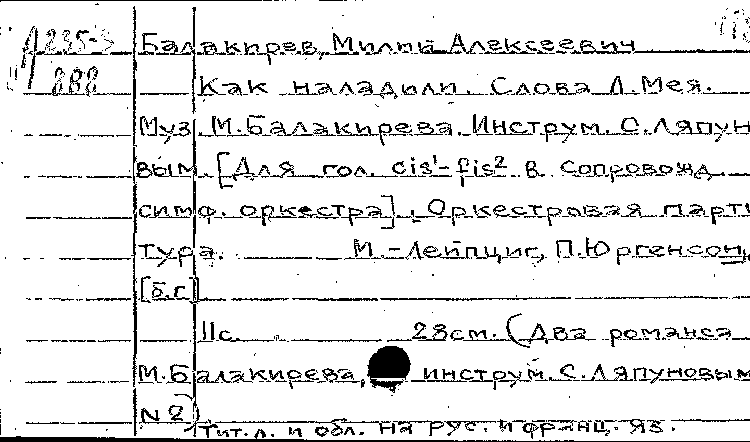 Д 235-3 Балакирев, Милий Алексеевич
888 Как наладили. Слова Л. Мея.
Муз. М. Балакирева. Инструм. С. Ляпуно
вым. [Для гол. cis¹-fis² в сопровожд.
симф. оркестра]. Оркестровая парти
тура. М.-Лейпциг, П. Юргенсон,
[б.г.]
11с. 28см. (Два романса
М. Балакирева, инструм. С. Ляпуновым
N 2)
Тит. л. и обл. на рус. и франц. яз.